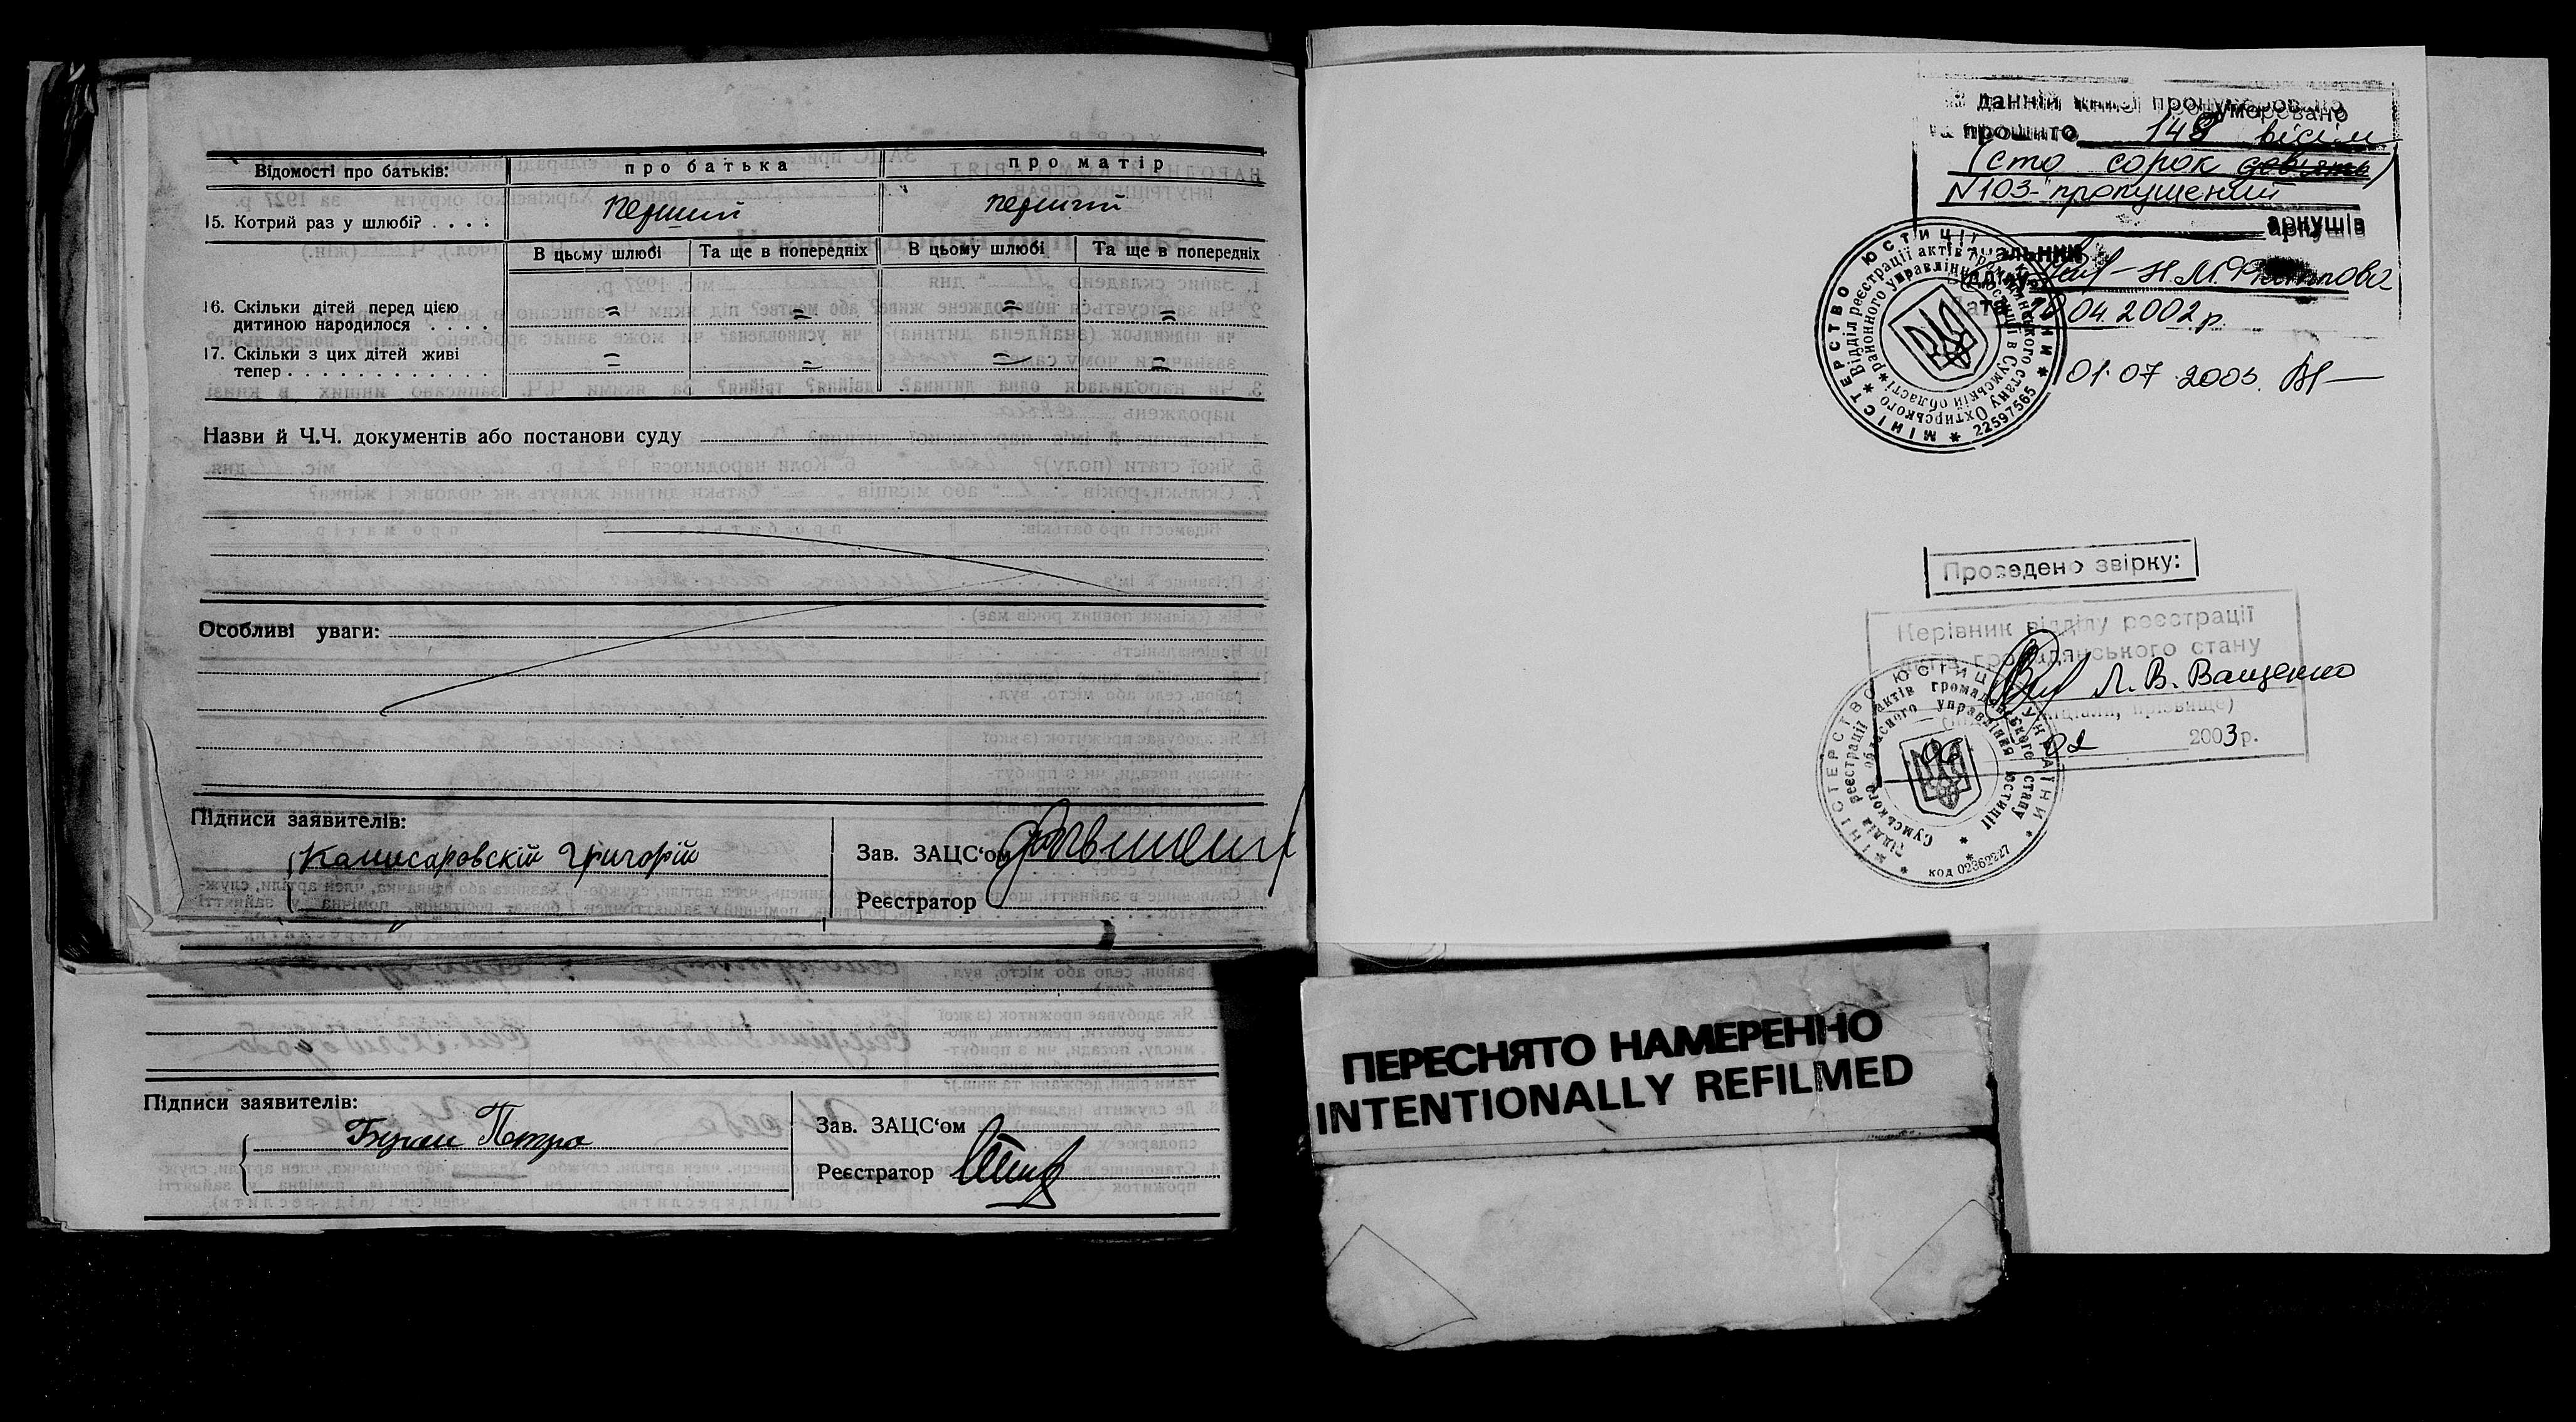 Відомості про батьків: про батька про матір
15. Котрий раз у шлюбі? . . . . Перший Перший
В цьому шлюбі Та ще в попередніх В цьому шлюбі Та ще в попередніх
16. Скільки дітей перед цією
дитиною народилося . . . . = = = =
17. Скільки з цих дітей живі
тепер . . . . . . . . . . . . = = = =
Назви й Ч.Ч. документів або постанови суду
Особливі уваги:
Підписи заявителів:
Комисаровскій Григорій
Зав. ЗАЦС‘ом
Реєстратор
Підписи заявителів:
Петро
Зав. ЗАЦС‘ом
Реєстратор
В данній книзі пронумеровано
та прошито 148 вісім
(сто сорок девять)
N103- пропущений
аркушів
Начальник
відділу Н.М.
Дата 04.2002 р.
МІНІСТЕРСТВО ЮСТИЦІЇ УКРАЇНИ * 22597565 *
Відділ реєстрації актів громадянського стану Охтирського
районного управління юстиції в Сумській області *
01.07.2003.
Проведено звірку:
Керівник відділу реєстрації
актів громадянського стану
Л. В. Ващенко
(ініціали, прізвище)
02 2003 р.
МІНІСТЕРСТВО ЮСТИЦІЇ УКРАЇНИ *
Відділ реєстрації актів громадянського стану *
Сумського обласного управління юстиції *
код 02362227
ПЕРЕСНЯТО НАМЕРЕННО
INTENTIONALLY REFILMED